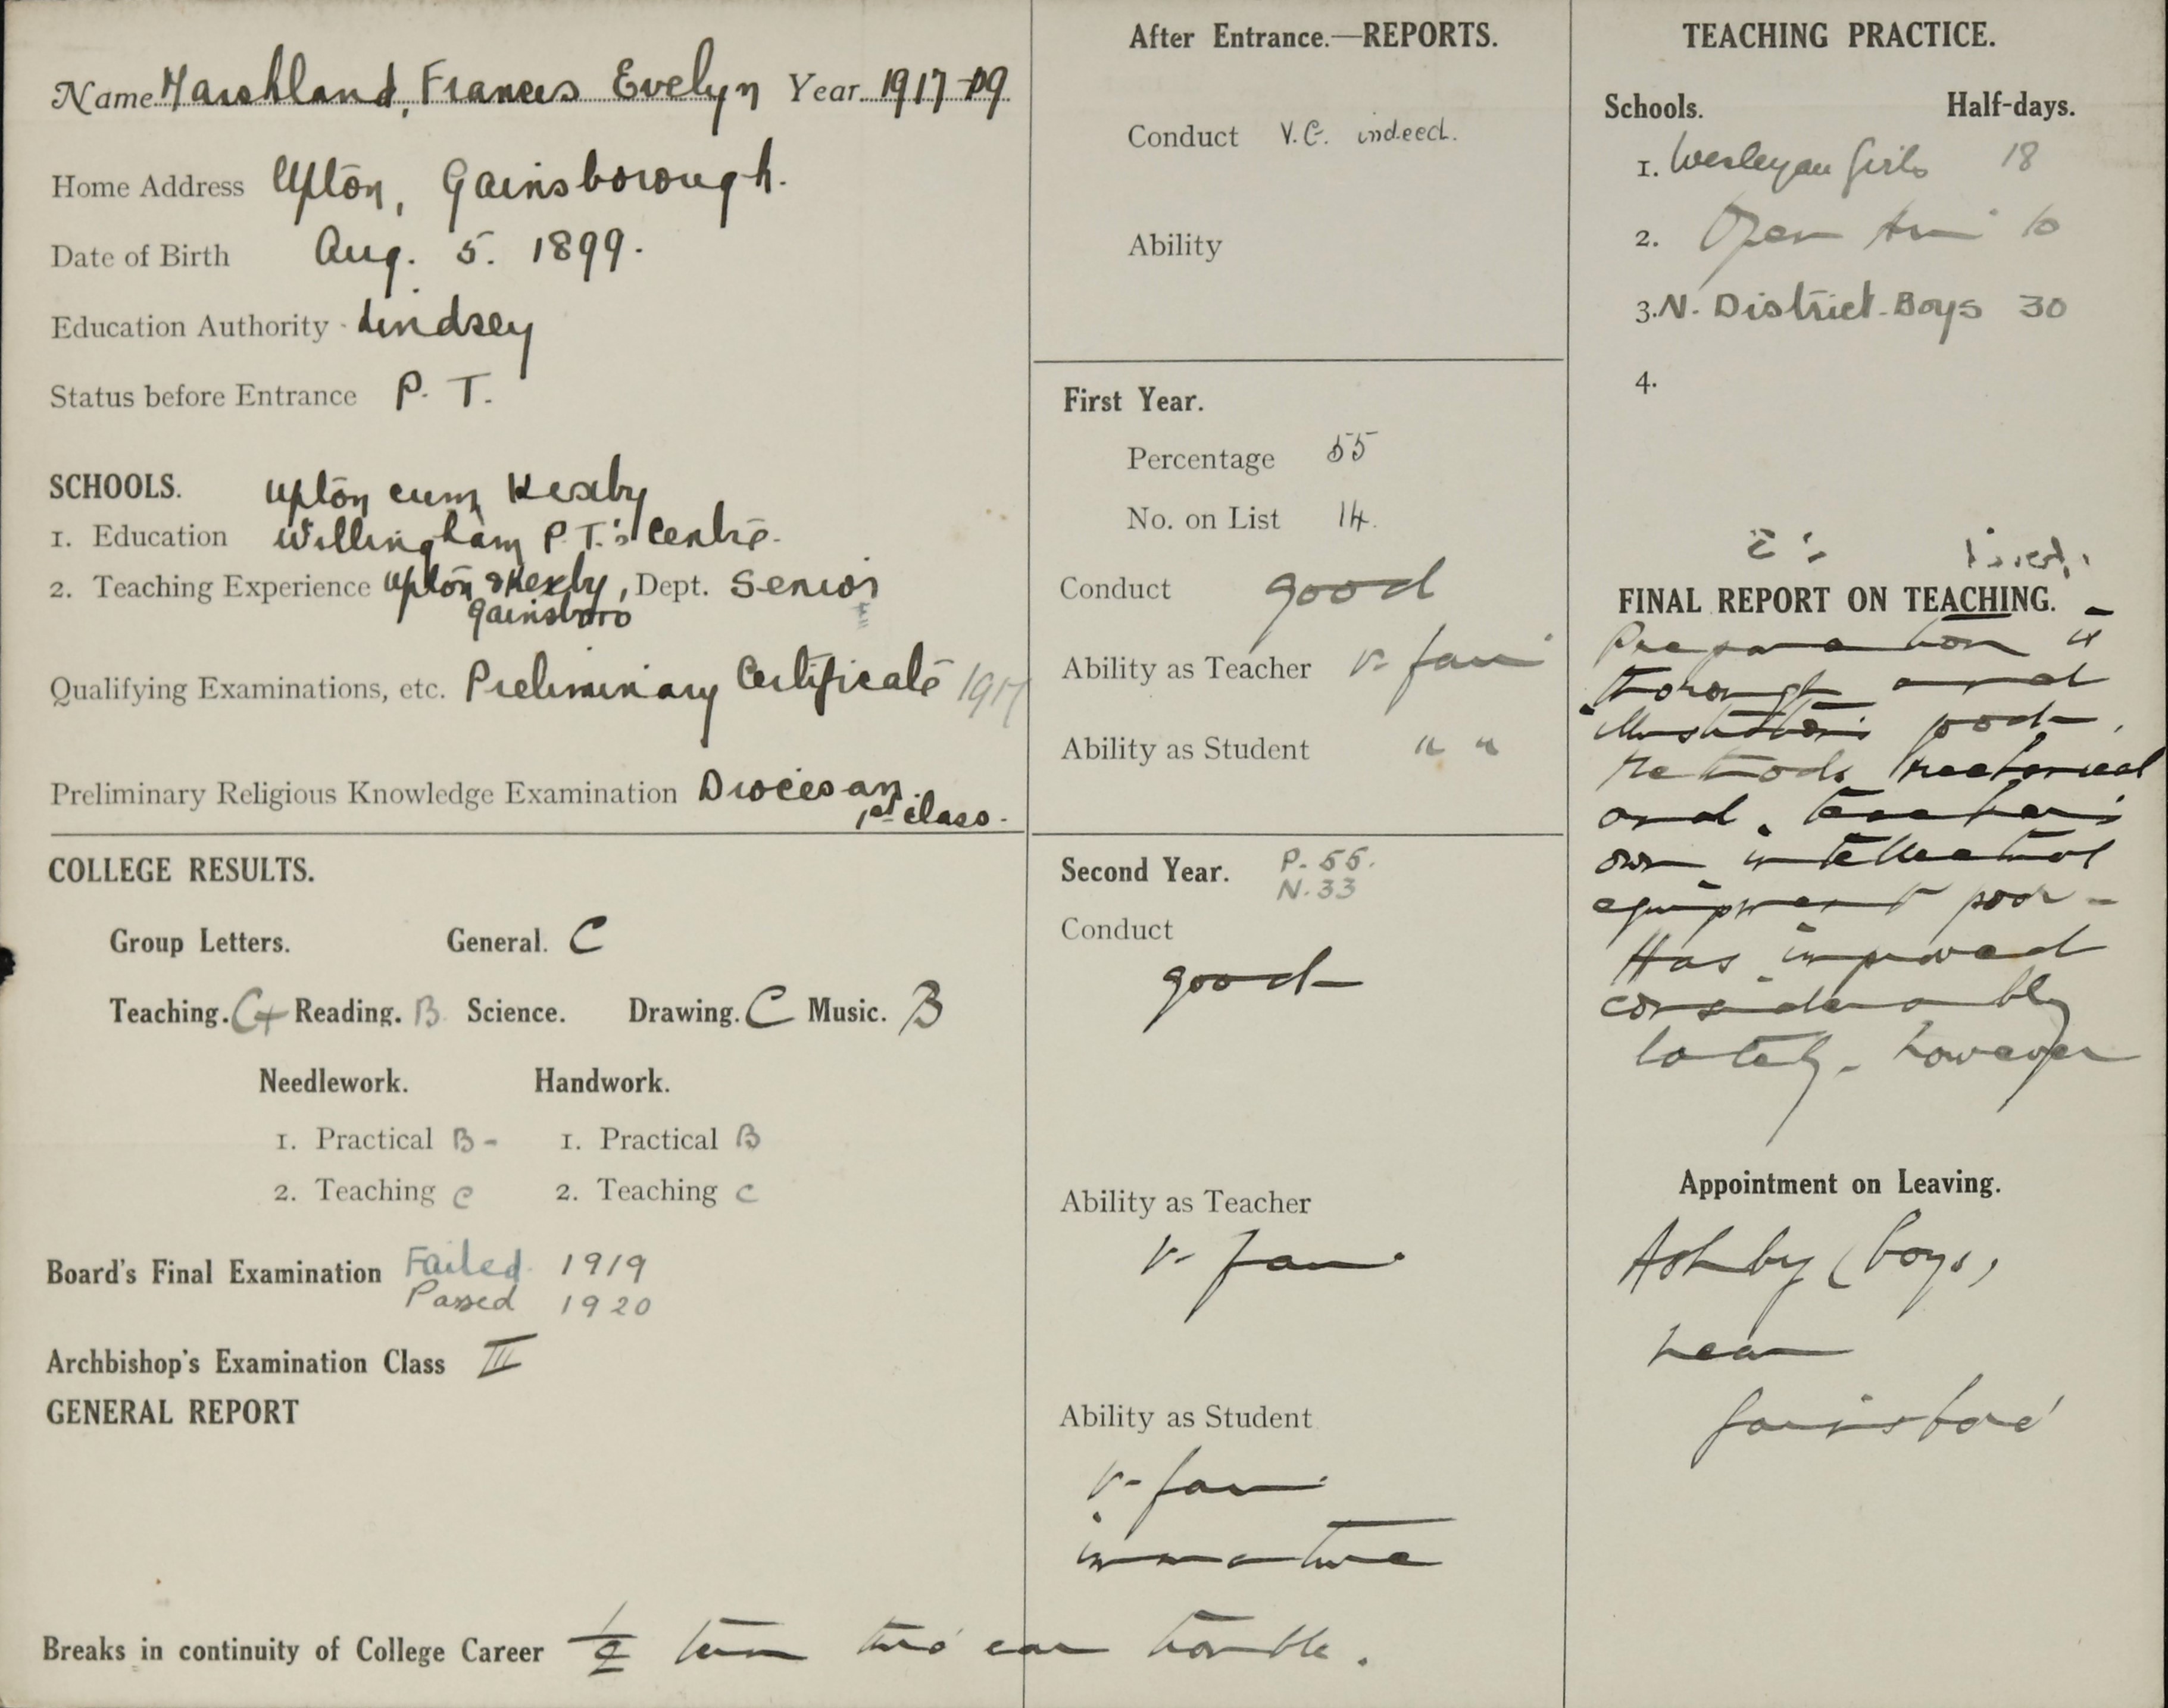 Name Marshland, Frances Evelyn Year 1917-19
Home Address Upton, Gainsborough.
Date of Birth Aug. 5. 1899.
Education Authority Lindsey
Status before Entrance P. T.
SCHOOLS. Upton cum Kexby
1. Education Willingham P.T.'s Centre.
2. Teaching Experience Upton & Kexby, Dept. Senior
Gainsboro
Qualifying Examinations, etc. Preliminary Certificate 1917
Preliminary Religious Knowledge Examination Diocesan.
1st class.
COLLEGE RESULTS.
Group Letters. General. C
Teaching. C+ Reading. B Science. Drawing. C Music. B
Needlework. Handwork.
1. Practical B- 1. Practical B
2. Teaching C 2. Teaching C
Board's Final Examination Failed 1919
Passed 1920
Archbishop's Examination Class III
GENERAL REPORT
Breaks in continuity of College Career 1/2 term thro' ear trouble.
After Entrance.—REPORTS.
Conduct V.G. indeed.
Ability
First Year.
Percentage 55
No. on List 14.
Conduct good
Ability as Teacher v. fair
Ability as Student " "
Second Year. P. 55.
N. 33
Conduct
good
Ability as Teacher
v. fair
Ability as Student
v. fair
immature
TEACHING PRACTICE.
Schools. Half-days.
1. Wesleyan Girls 18
2. Open Air 10
3. N. District Boys 30
4.
FINAL REPORT ON TEACHING.
Preparation is
thorough and
illustrations good.
Methods mechanical
and teacher's
own intellectual
equipment poor -
Has improved
considerably
lately - however
Appointment on Leaving.
Ashby (boys)
near
Gainsboro'